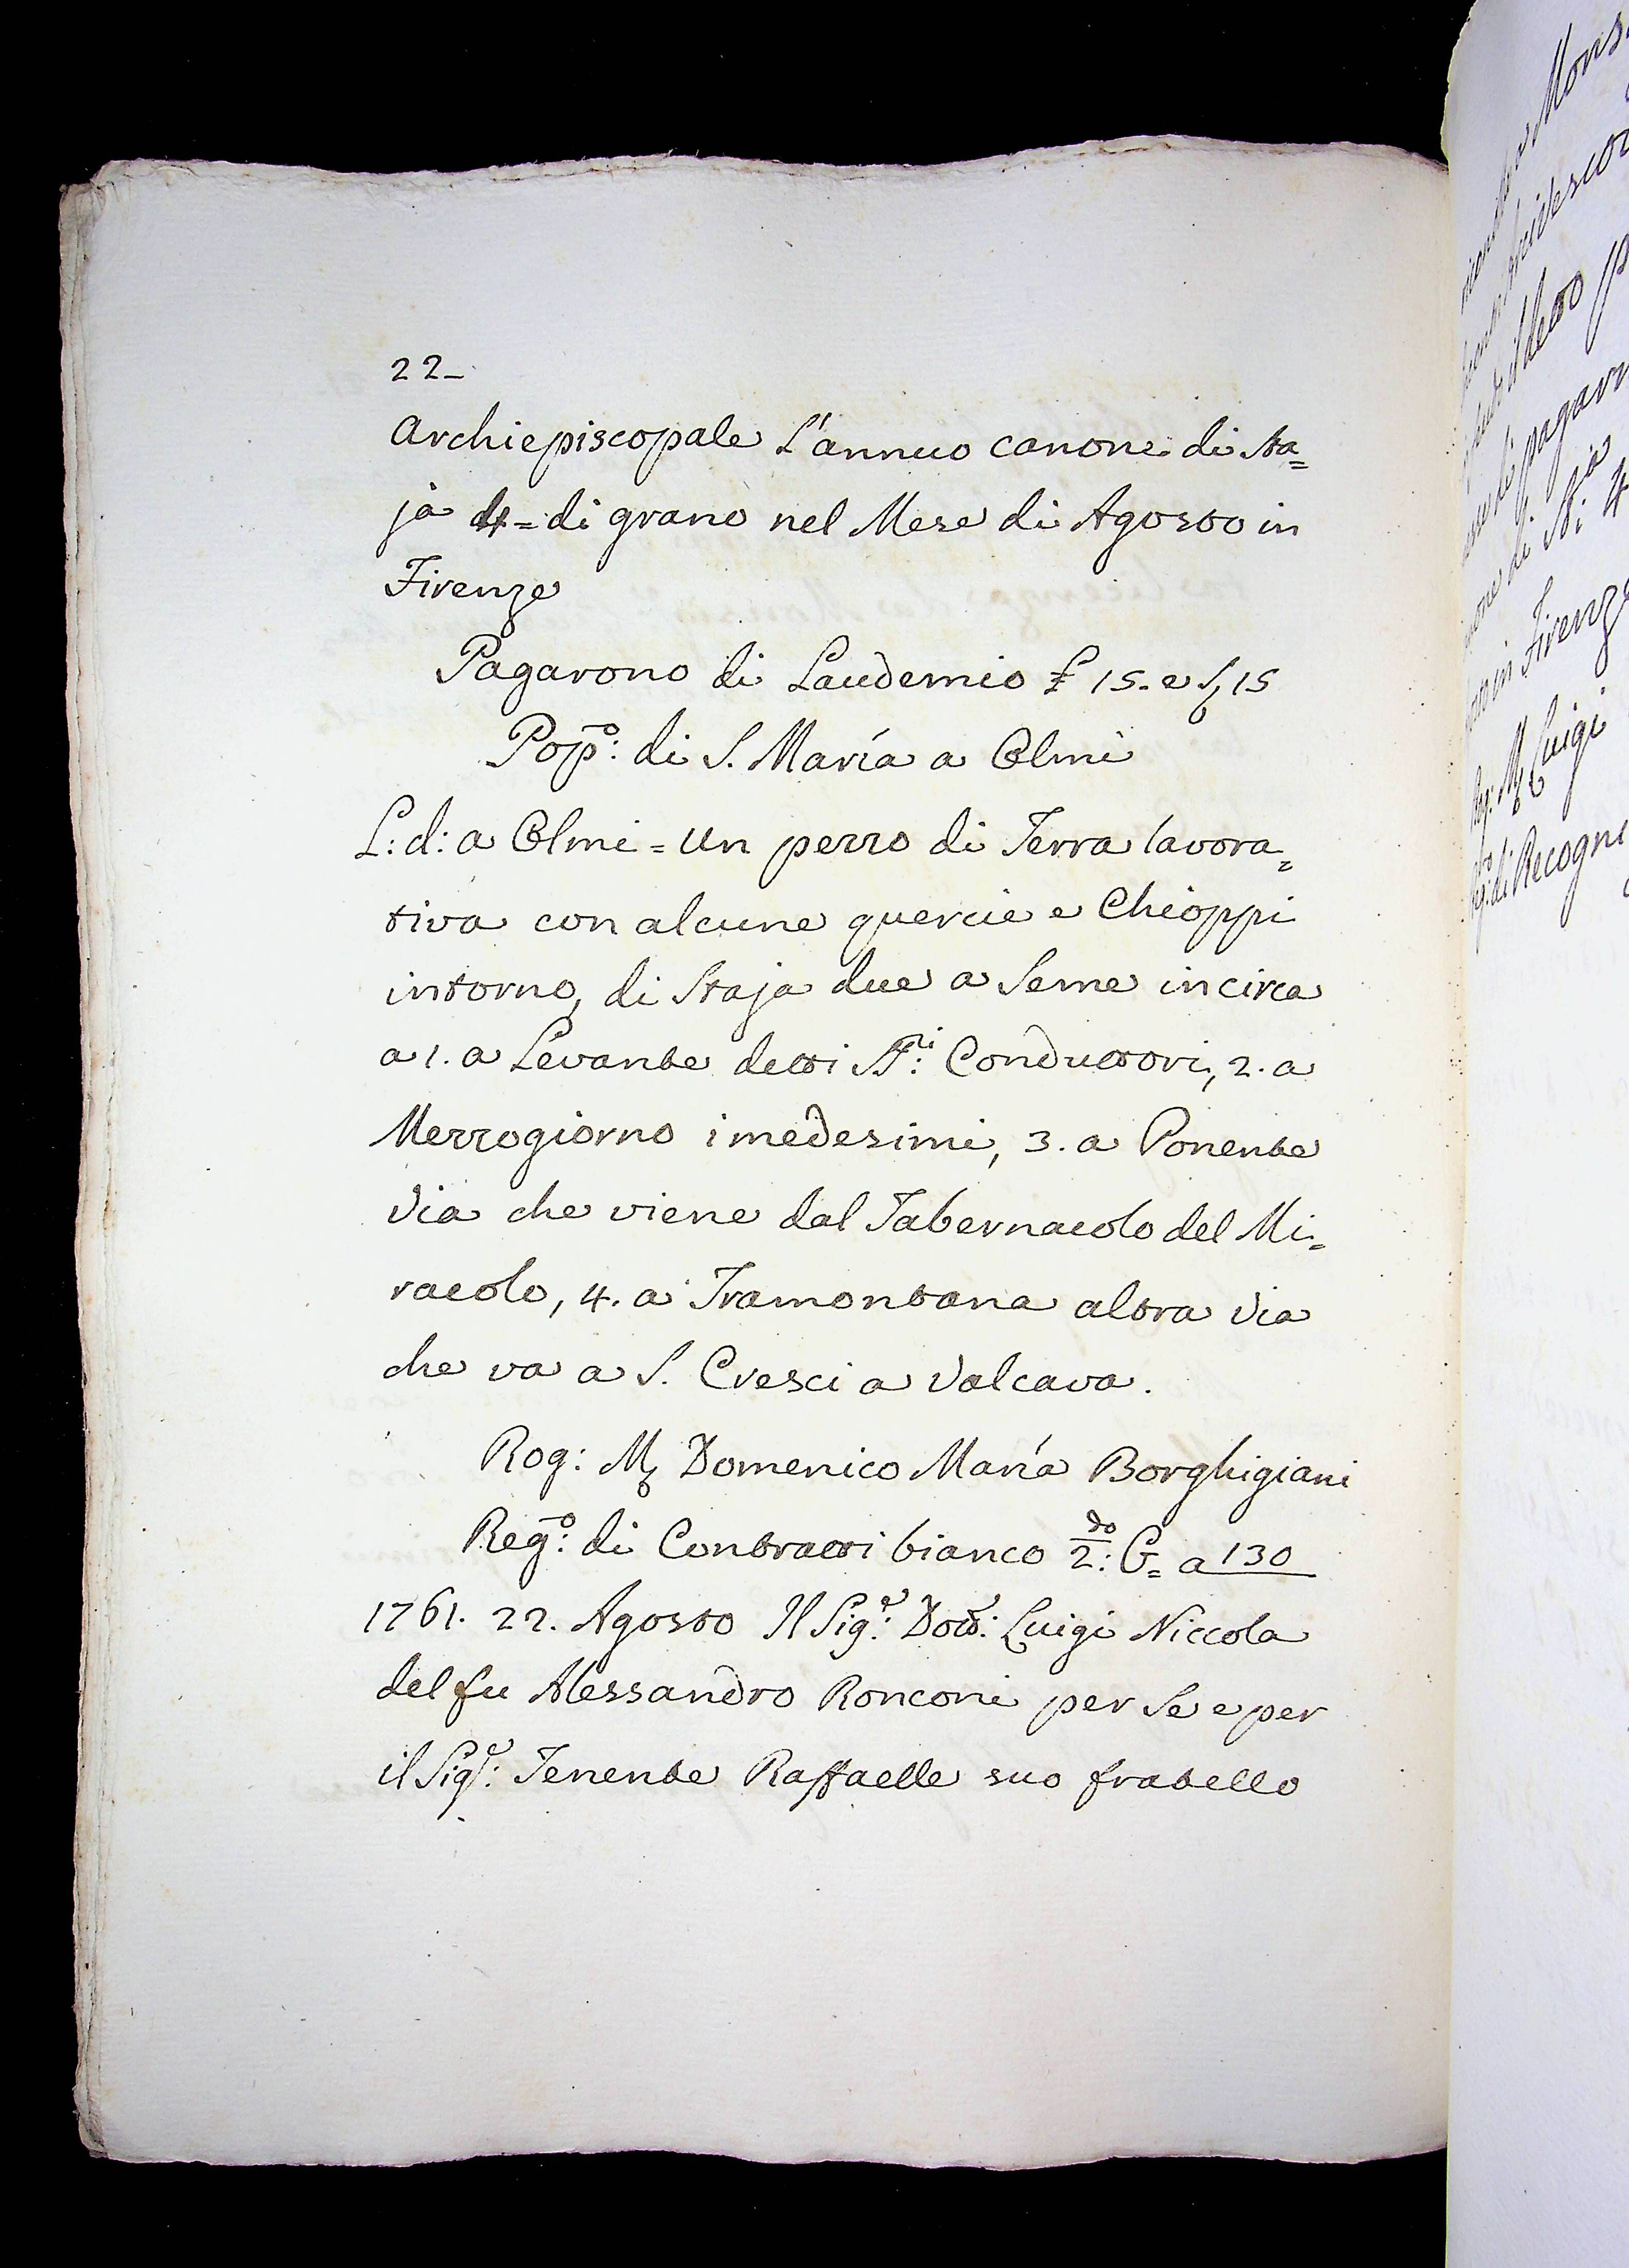 22_
Archiepiscopale L'annuo canone di Sta=
ja 4= di grano nel Mese di Agosto in
Firenze
Pagarono di Laudemio £ 15. e f, 15
Popo: di S. Maria a Olmi
L: d: a Olmi = Un pezzo di Terra lavora=
tiva con alcune quercie e Chioppi
intorno, di Staja due a Seme incirca
a 1. a Levante detti SSri: Conduttori, 2. a
Mezzogiorno i medesimi, 3. a Ponente
Via che viene dal Tabernacolo del Mi=
racolo, 4. a Tramontana altra Via
che va a S. Cresci a Valcava.
Rog: M, Domenico Maria Borghigiani
Rego: di Contratti bianco 2do: G= a 130
1761. 22. Agosto Il Sigre: Dottr: Luigi Niccola
del fu Alessandro Ronconi per Se e per
il Sigr: Tenente Raffaelle suo fratello
Mons
il detto
pagarn
in Firenze
Rog: M, Luigi
di Recogni